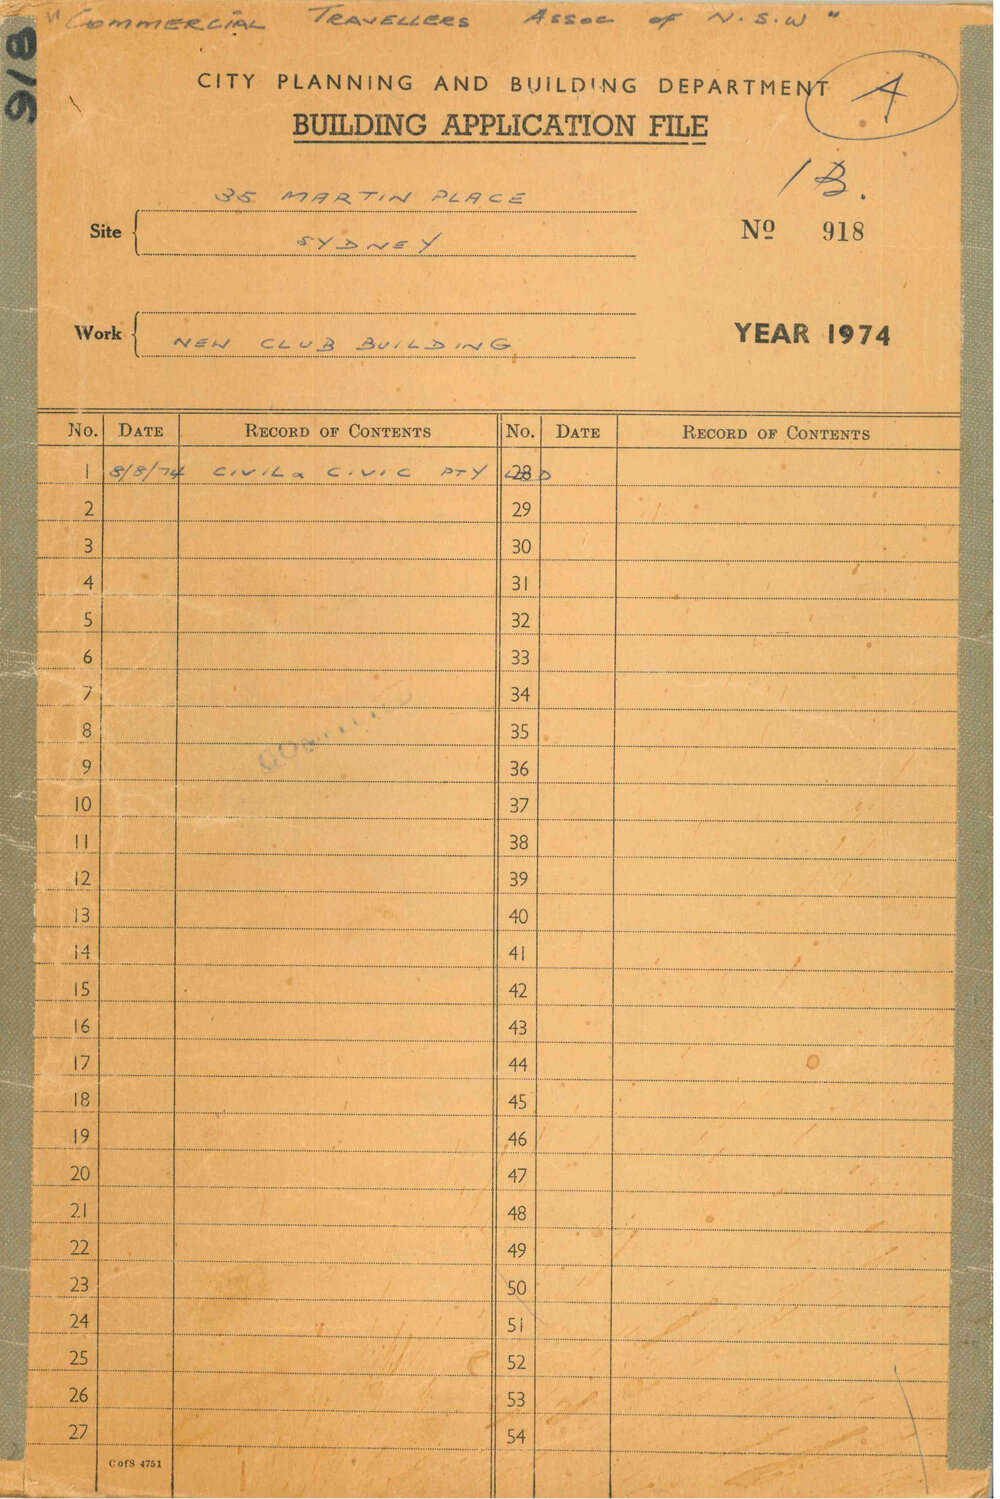 "COMMERCIAL TRAVELLERS ASSOC of N.S.W"
918
CITY PLANNING AND BUILDING DEPARTMENT
A
BUILDING APPLICATION FILE
1B.
35 MARTIN PLACE
Site
SYDNEY
Nº 918
Work
NEW CLUB BUILDING
YEAR 1974
No. DATE RECORD OF CONTENTS No. DATE RECORD OF CONTENTS
1 8/8/74 CIVIL & CIVIC PTY LTD 28
2 29
3 30
4 31
5 32
6 33
7 34
8 35
9 36
10 37
11 38
12 39
13 40
14 41
15 42
16 43
17 44
18 45
19 46
20 47
21 48
22 49
23 50
24 51
25 52
26 53
27 54
C of S 4751